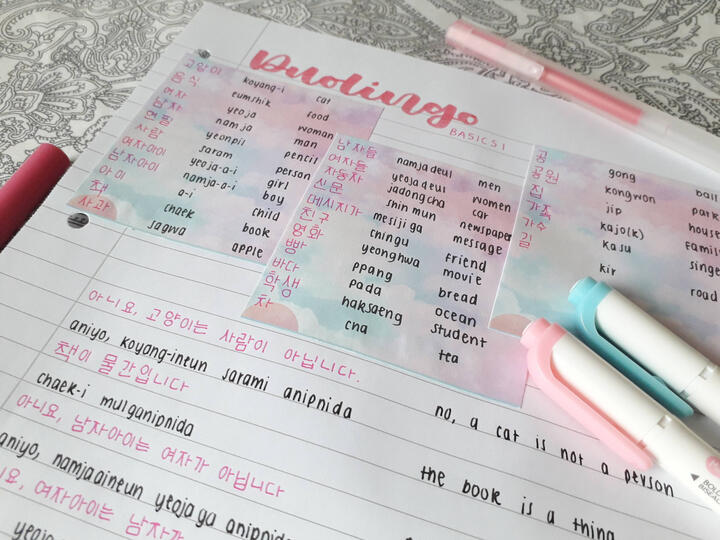 Duolingo
BASICS 1
고양이 koyang-i cat
음식 eumshik food
여자 yeoja woman
남자 namja man
연필 yeonpil pencil
사람 saram person
여자아이 yeoja-a-i girl
남자아이 namja-a-i boy
아이 a-i child
책 chaek book
사과 sagwa apple
남자들 namjadeul men
여자들 yeojadeul women
자동차 jadongcha car
신문 shinmun newspaper
메시지가 mesiji ga message
친구 chingu friend
영화 yeonghwa movie
빵 ppang bread
바다 pada ocean
학생 haksaeng student
차 cha tea
공 gong ball
공원 kongwon park
집 jip house
가족 kajo(k)
가수 kasu
길 kir road
아니요, 고양이는 사람이 아닙니다.
aniyo, koyang-ineun sarami anipnida no, a cat is not a person
책이 물간입니다
chaek-i mulganipnida the book is a thing
아니요, 남자아이는 여자가 아닙니다
aniyo, namjaaineun yeojaga anipnida
여자아이는 남자가